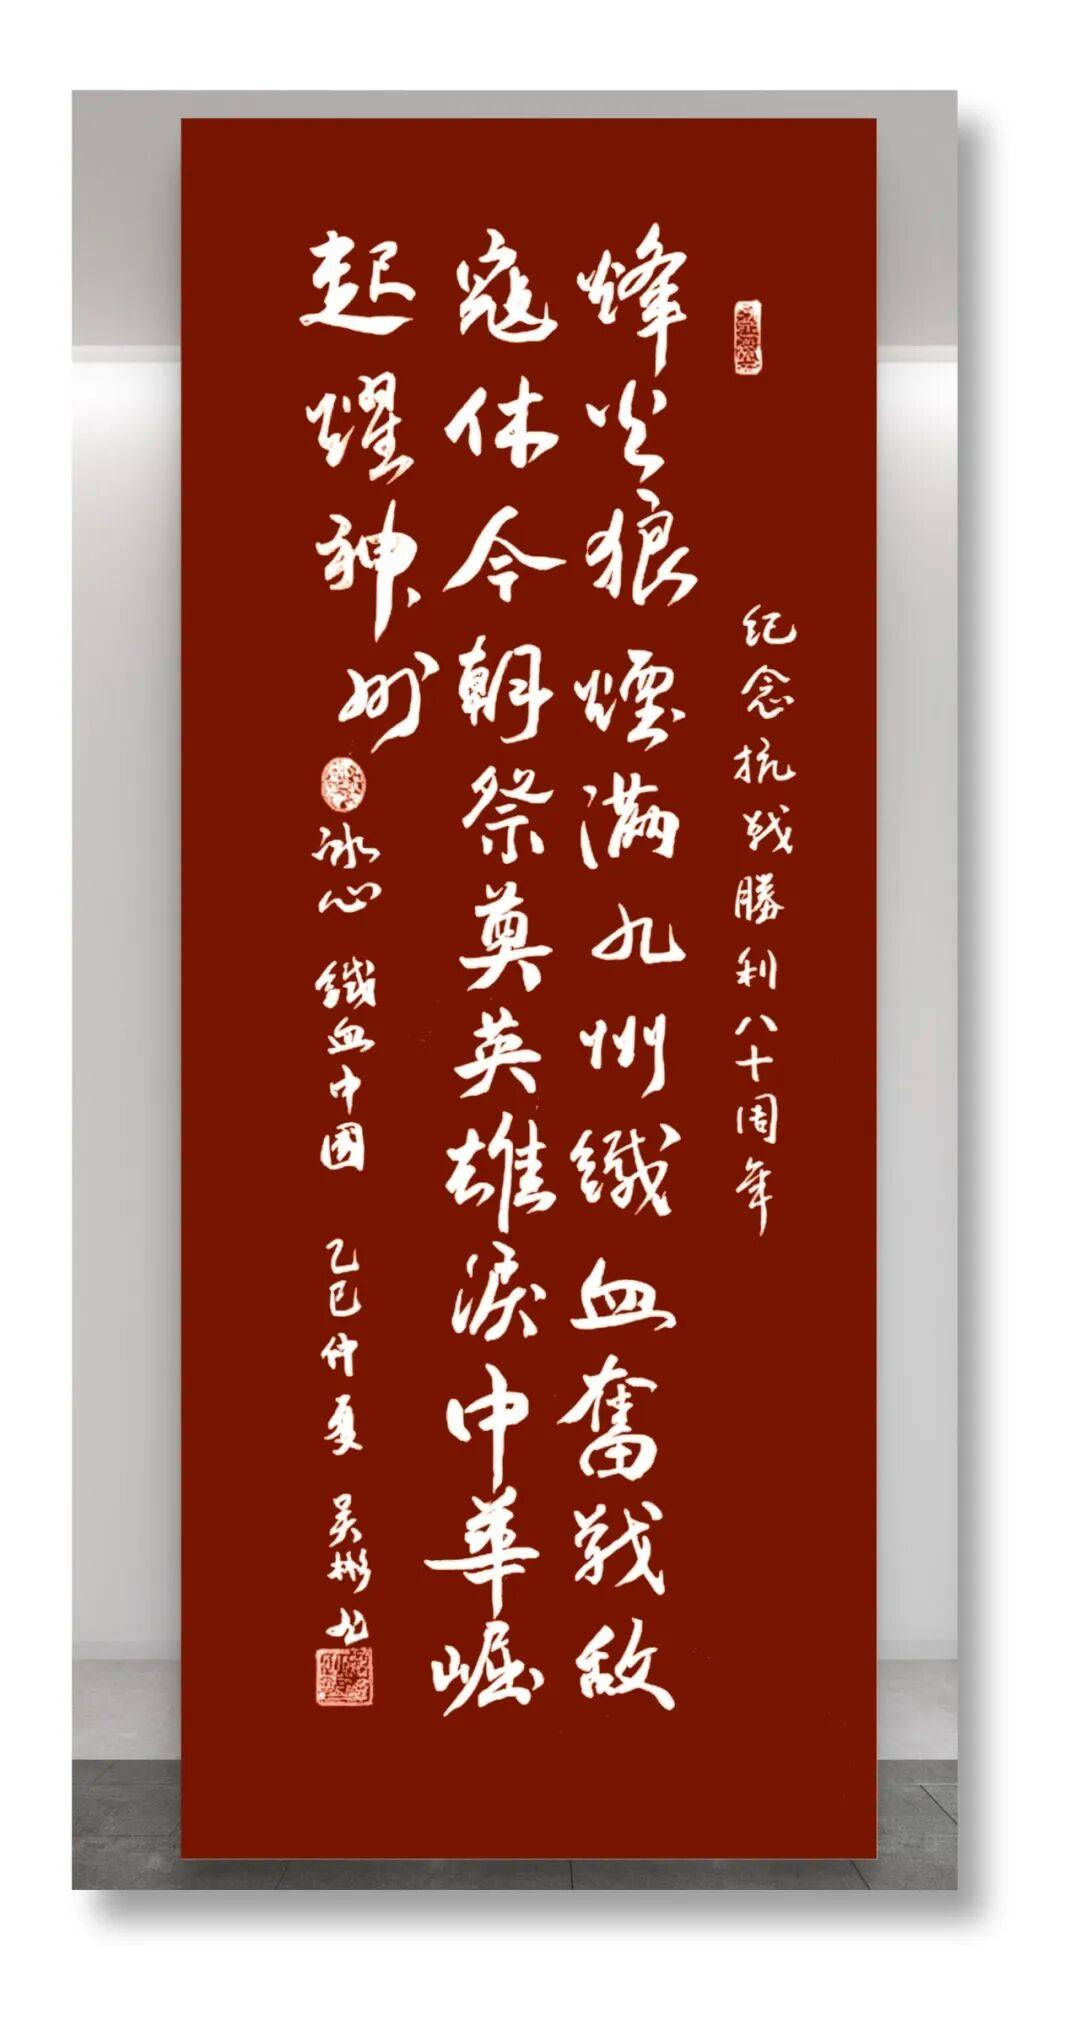 纪念抗战勝利八十周年
烽火狼煙满九州纖血奮战敌
寇休今朝祭奠英雄淚中華崛
起耀神州
冰心 纖血中國 乙巳仲夏 吴彬书